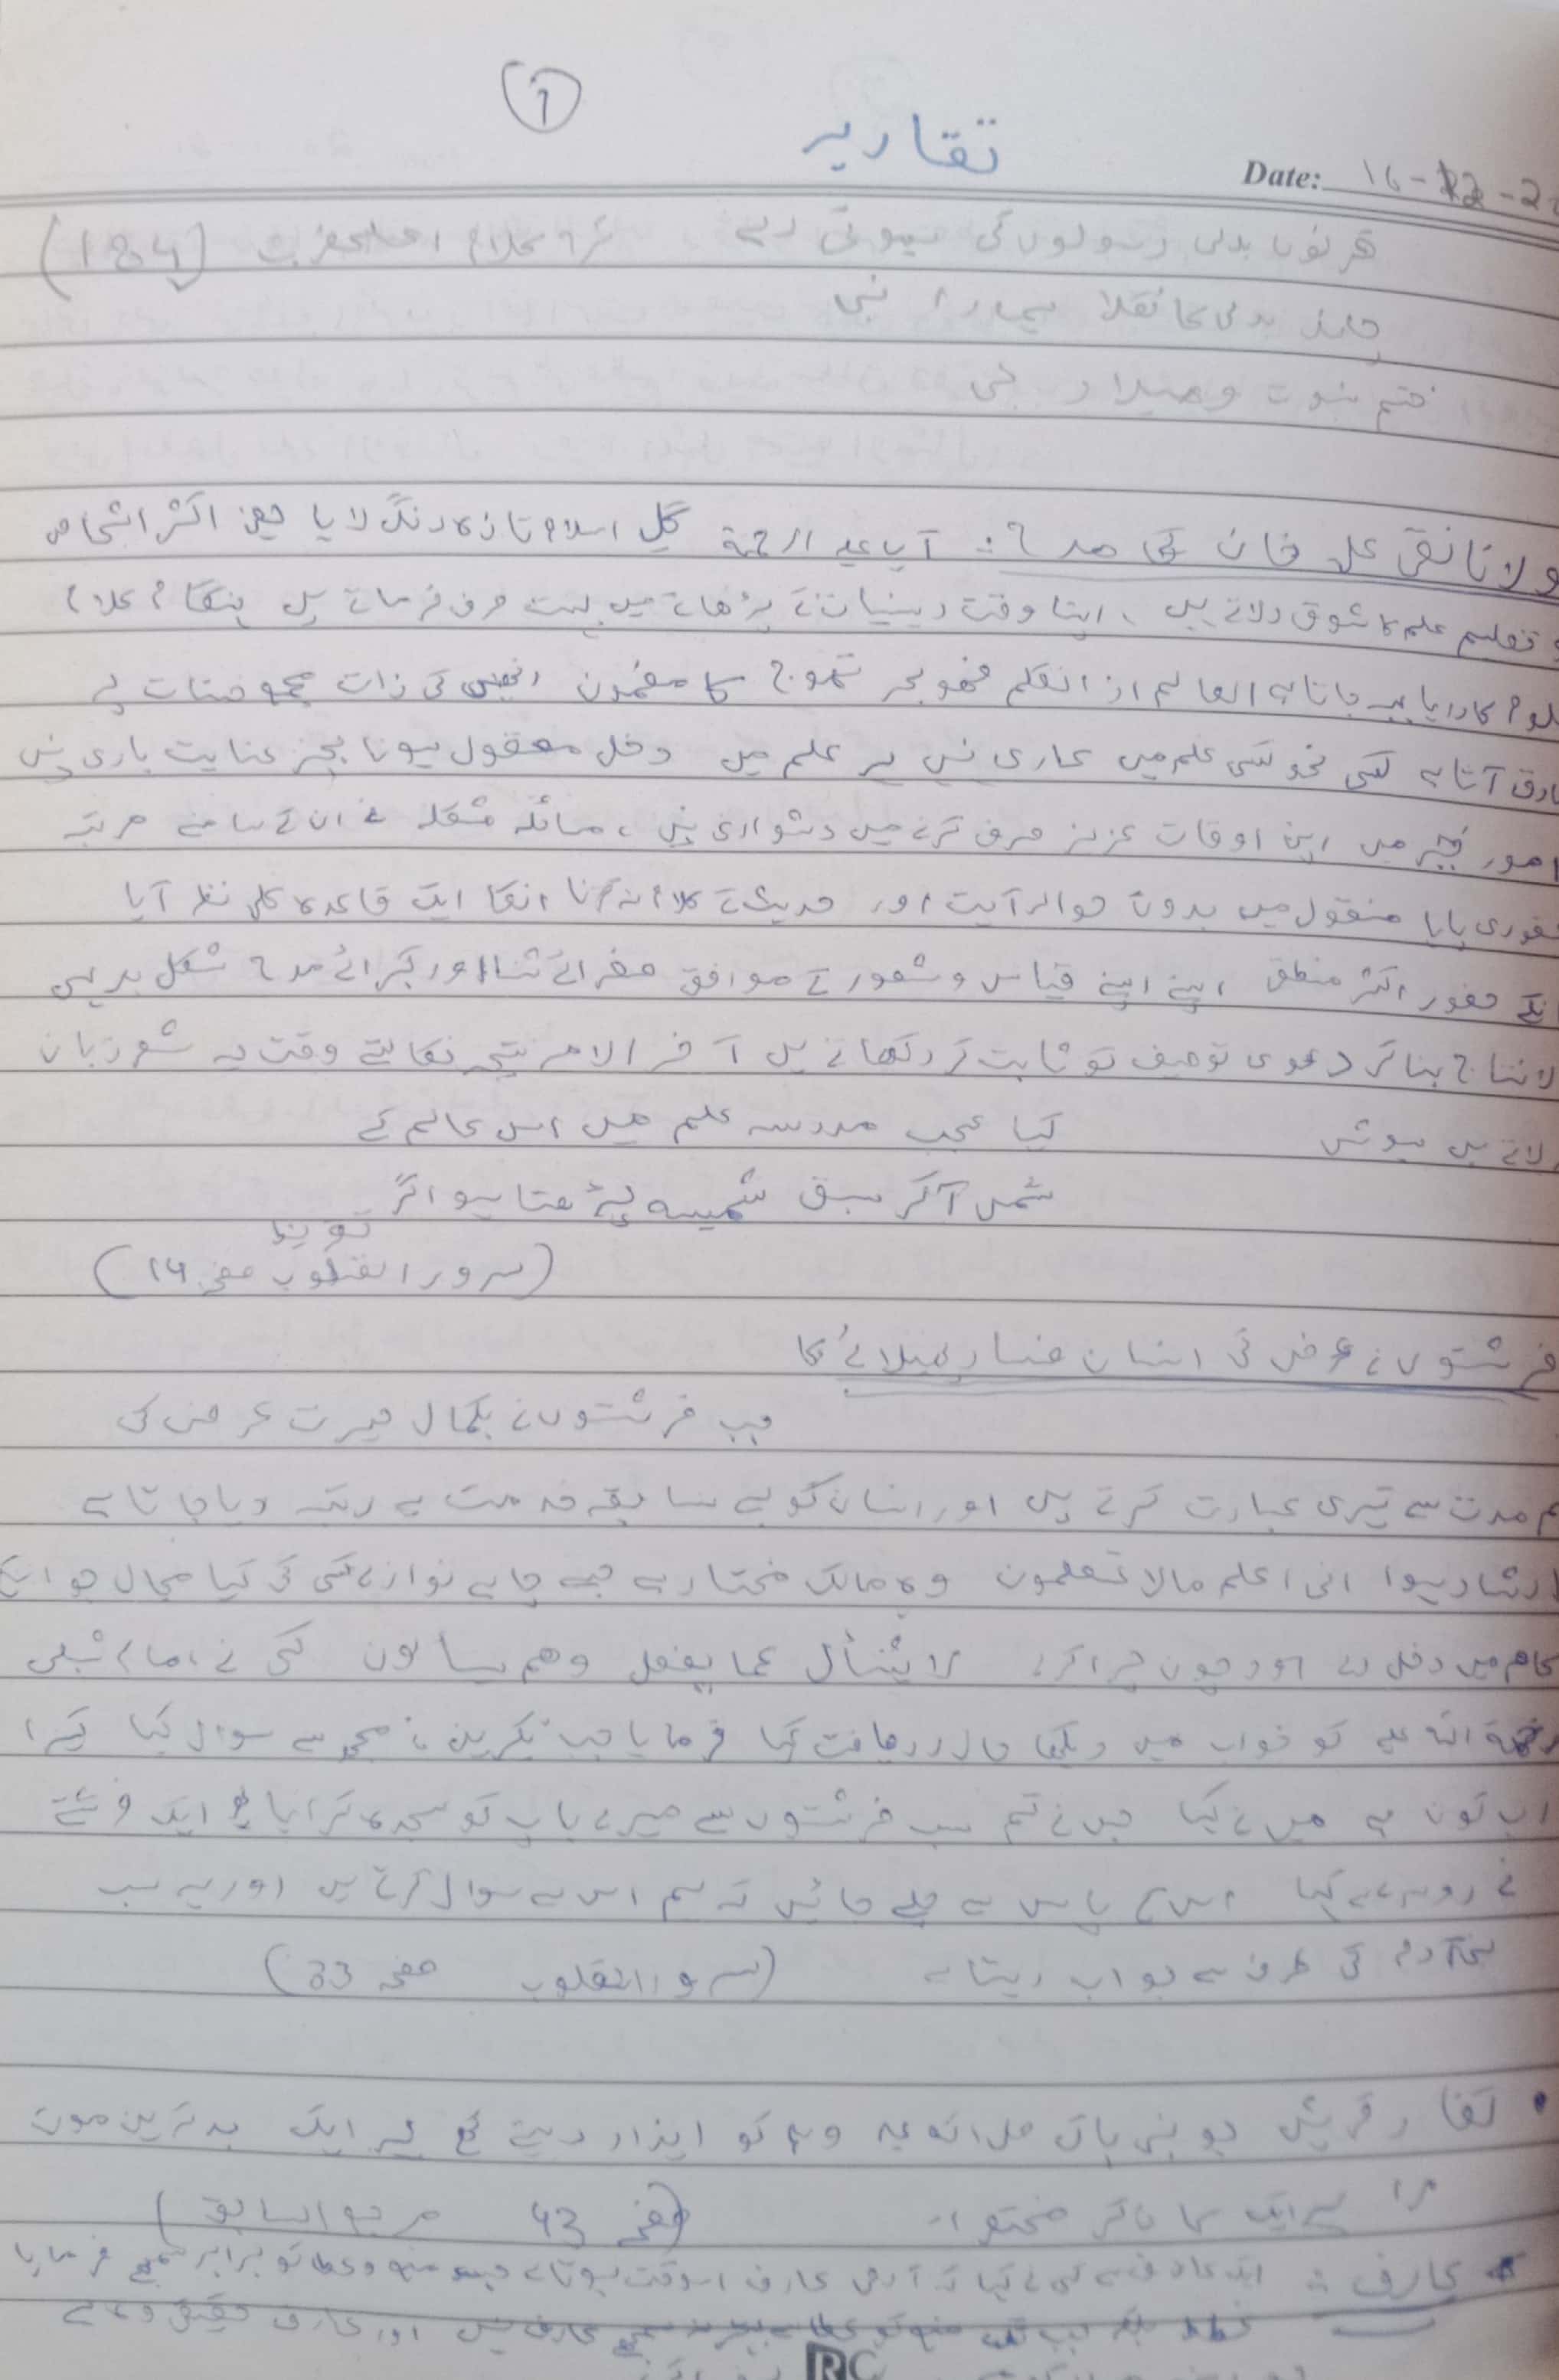 1
تقاریر
Date: 16-12-2
قرنوں بدلی رسولوں کی ہوتی رہی شرح کلام اعلحضرت (184)
چاند بدلی کا نکلا ہمارا نبی
ختم نبوت و میلاد نبی
ولانا نقی علی خان کی مدح: آپ علیہ الرحمۃ گلِ اسلام تازہ رنگ لایا یعنی اکثر اشخاص
تعلیم علم کا شوق دلاتے ہیں، اپنا وقت دینیات کے پڑھانے میں بہت صرف فرماتے ہیں ہنگام کلام
لوم کا دریا بہہ جاتا ہے العالم اذا تکلم فھو بحر تموج کا مضمون انھیں کی ذات مجمع حسنات پے
ادق آتا ہے کسی نحو کسی علم میں عاری نہیں ہر علم میں دخل معقول ہونا بجز عنایت باری نہیں
امور خیر میں اپنی اوقات عزیز صرف کرنے میں دشواری نہیں، مسائلہ مشکلہ نے ان کے سامنے مرتبہ
ضوری پایا منقول میں بدون حوالہ آیت اور حدیث کے کلام نہ کرنا انکا ایک قاعدہ کلی نظر آیا
نکے حضور اکثر منطق اپنے اپنے قیاس و شعور کے موافق صغرائے ثنا اور کبرائے مدح شکل بدیہی
لانتاج بنا کر دعوی توصیف کو ثابت کر دکھاتے ہیں آخر الامر نتیجہ نکالتے وقت یہ شعر زبان
لاتے ہیں ہوش کیا عجب مدرسہ علم میں اس عالم کے
شمس آکر سبق شمسیہ پڑھتا ہو اگر
(سرور القلوب صفحہ 14)
فرشتوں نے عرض کی انسان فساد پھیلائے گا
جب فرشتوں نے بکمال حیرت عرض کی
م مدت سے تیری عبادت کرتے ہیں اور انسان کو بے سابقہ خدمت یہ رتبہ دیا جاتا ہے
ارشاد ہوا انی اعلم مالا تعلمون وہ مالک مختار ہے جسے چاہے نوازے کسی کی کیا مجال جو اسکے
کام میں دخل دے اور چون چرا کرے لا یسئال عما یفعل وھم یسالون کسی نے امام شبلی
رحمۃ اللہ علیہ کو خواب میں دیکھا حال دریافت کیا فرمایا جب نکرین نے مجھ سے سوال کیا تیرا
رب کون ہے میں نے کہا جس نے تم سب فرشتوں سے میرے باپ کو سجدہ کرایا ایک فرشتے
نے دوسرے سے کہا اس کے پاس سے چلے جائیں کہ ہم اس سے سوال کرتے ہیں اور یہ سب
بنی آدم کی طرف سے جواب دیتا ہے (سرور القلوب صفحہ 33)
کفار قریش جو نبی پاک صل اللہ علیہ وسلم کو ایذاء دیتے تھے ہر ایک بدترین موت
مرا ہے ایک کا ذکر (صفحہ 43 مرجع السابق)
عارف: ایک عارف سے کسی نے کہا کہ آدمی عارف اسوقت ہوتا ہے جب منع و عطا کو برابر سمجھے فرمایا
غلط بلکہ جب تک منع کو عطا سے بہتر نہ سمجھے عارف نہیں اور عارف حقیقی وہ ہے
RC